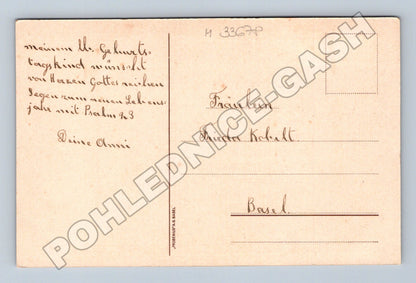 H 3367P
meinem lb. Geburts-
tagskind wünscht
von Herzen Gottes reichen
Segen zum neuen Lebens-
jahr mit Psalm 23
Deine Anni
Fräulein
Kobelt.
Basel.
POHLEDNICE-GASH